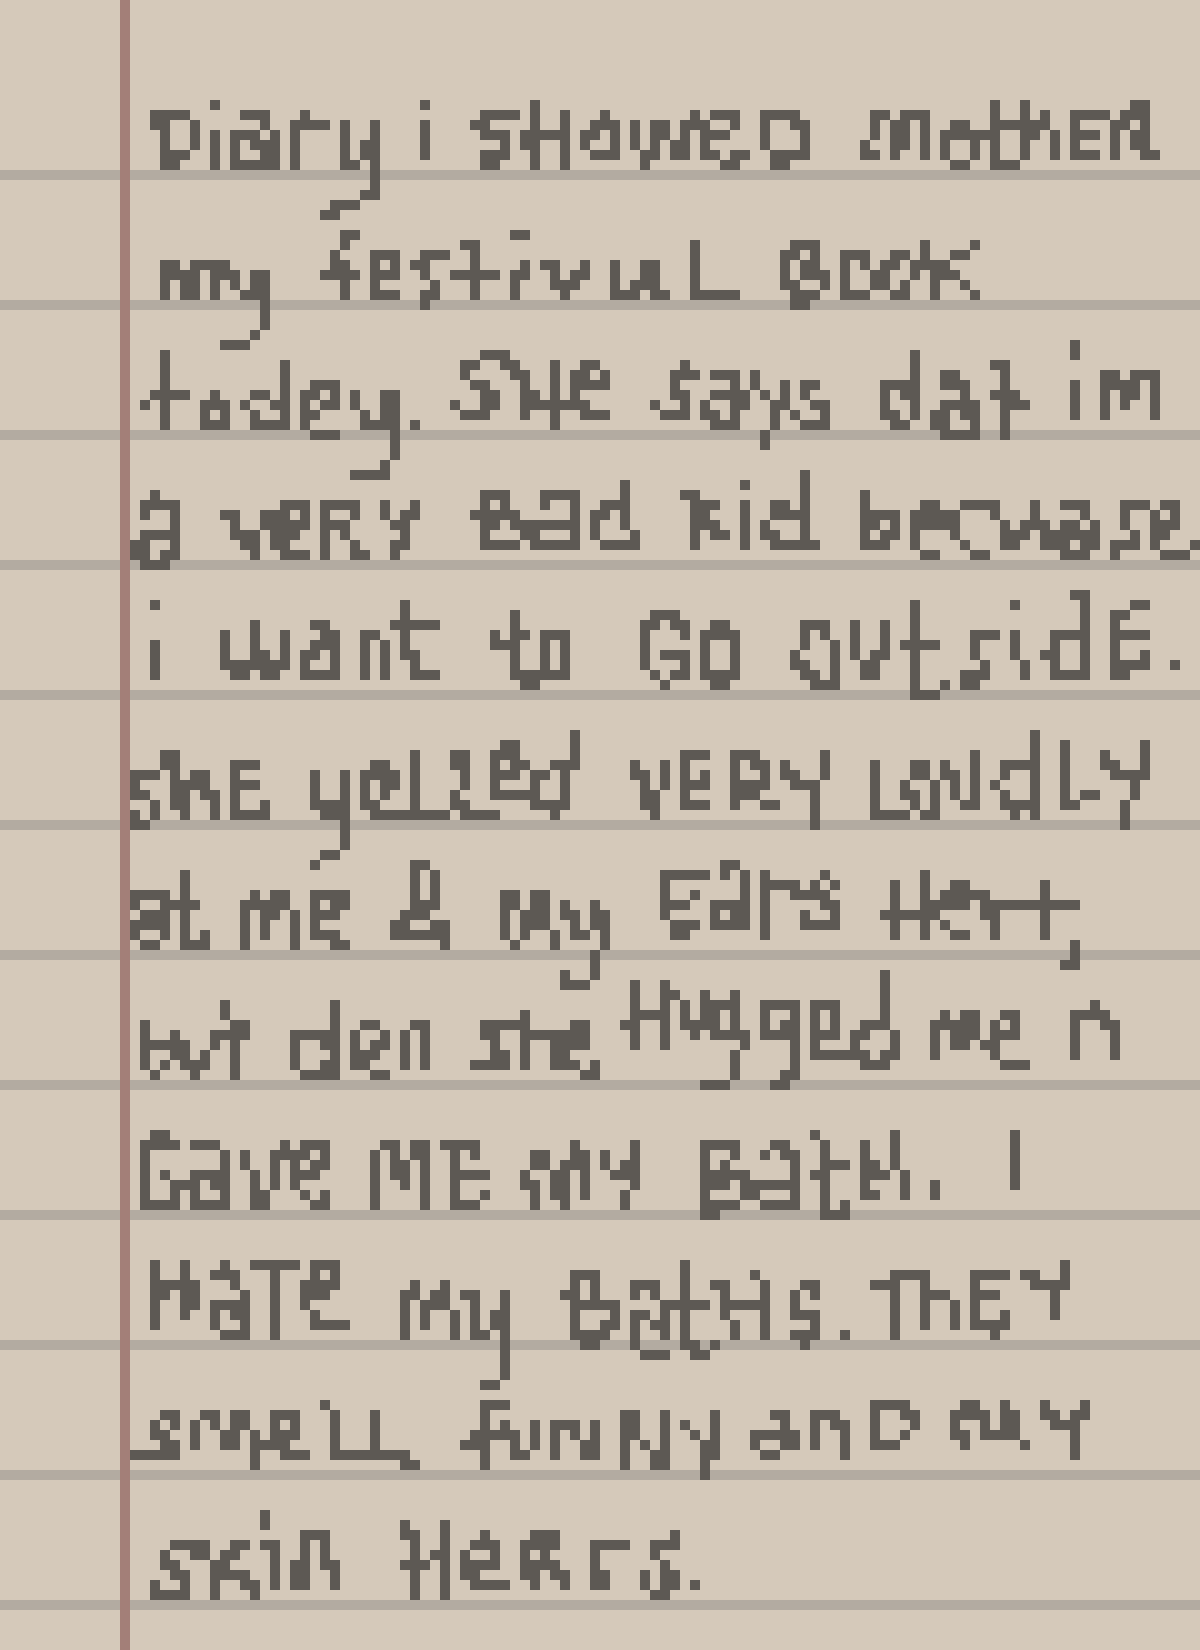 Diary i sHowED motHER
my festivuL Book
todey. SHe says dat im
a veRy Bad kid becuase
i want to Go outsidE.
sHE yelled VERY LoudLY
at me & my Ears Hert,
but den sHe Hugged me n
Gave ME my BatH. I
HATE my BatHs. THEY
smell fuNNy anD my
skin HeRrs.